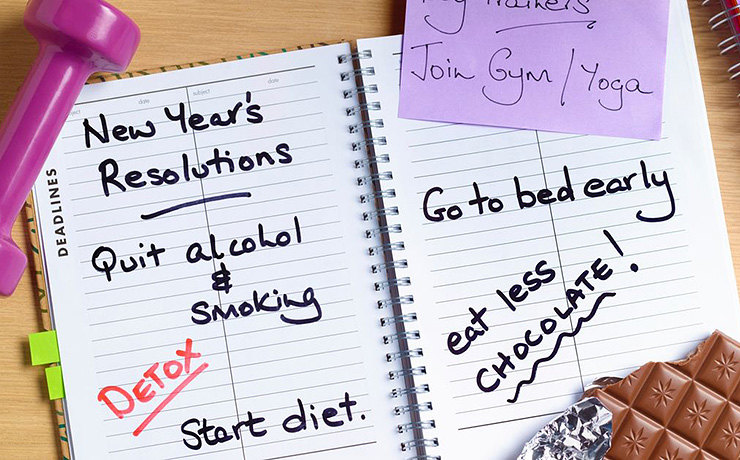 date subject date
DEADLINES
New Year's
Resolutions
Quit alcohol
&
smoking
DETOX
Start diet.
trainers
Join Gym / Yoga
Go to bed early
eat less
CHOCOLATE!